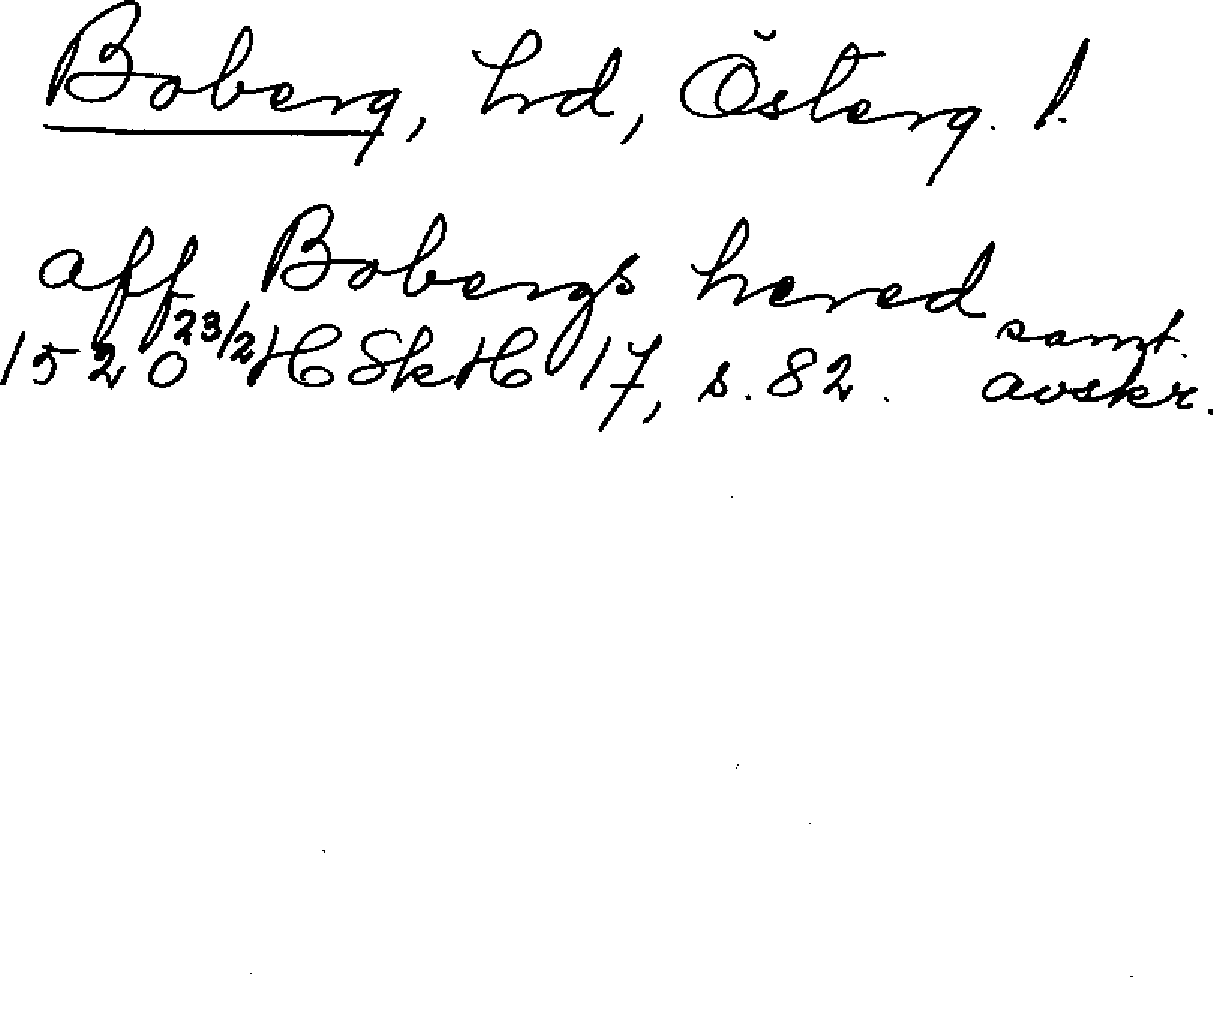 Boberg, hd, Österg. l.
aff Bobergs hered
1520 23/2 HSkH 17, s. 82. samt. avskr.